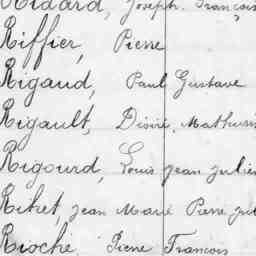 Ridard, Joseph. François
Riffier, Pierre
Rigaud, Paul Gustave
Rigault, Désiré, Mathurin
Rigourd, Louis Jean Julien
Rihet, Jean Marie Pierre Jul
Rioche, Pierre François